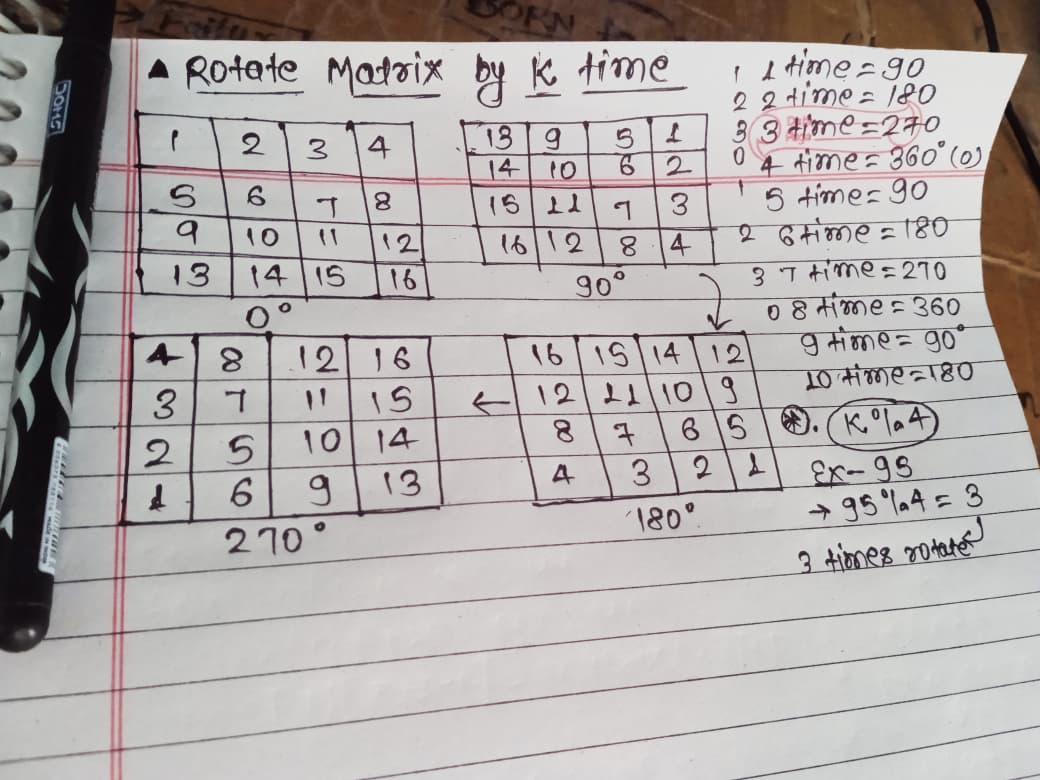 BORN
▲ Rotate Matrix by K time
1 2 3 4
5 6 7 8
9 10 11 12
13 14 15 16
0°
13 9 5 1
14 10 6 2
15 11 7 3
16 12 8 4
90°
16 15 14 12
12 11 10 9
8 7 6 5
4 3 2 1
180°
←
4 8 12 16
3 7 11 15
2 5 10 14
1 6 9 13
270°
1 1 time = 90
2 2 time = 180
3 3 time = 270
0 4 time = 360° (0)
1 5 time = 90
2 6 time = 180
3 7 time = 270
0 8 time = 360
9 time = 90°
10 time = 180
*. K%4
Ex - 95
→ 95%4 = 3
3 times rotate